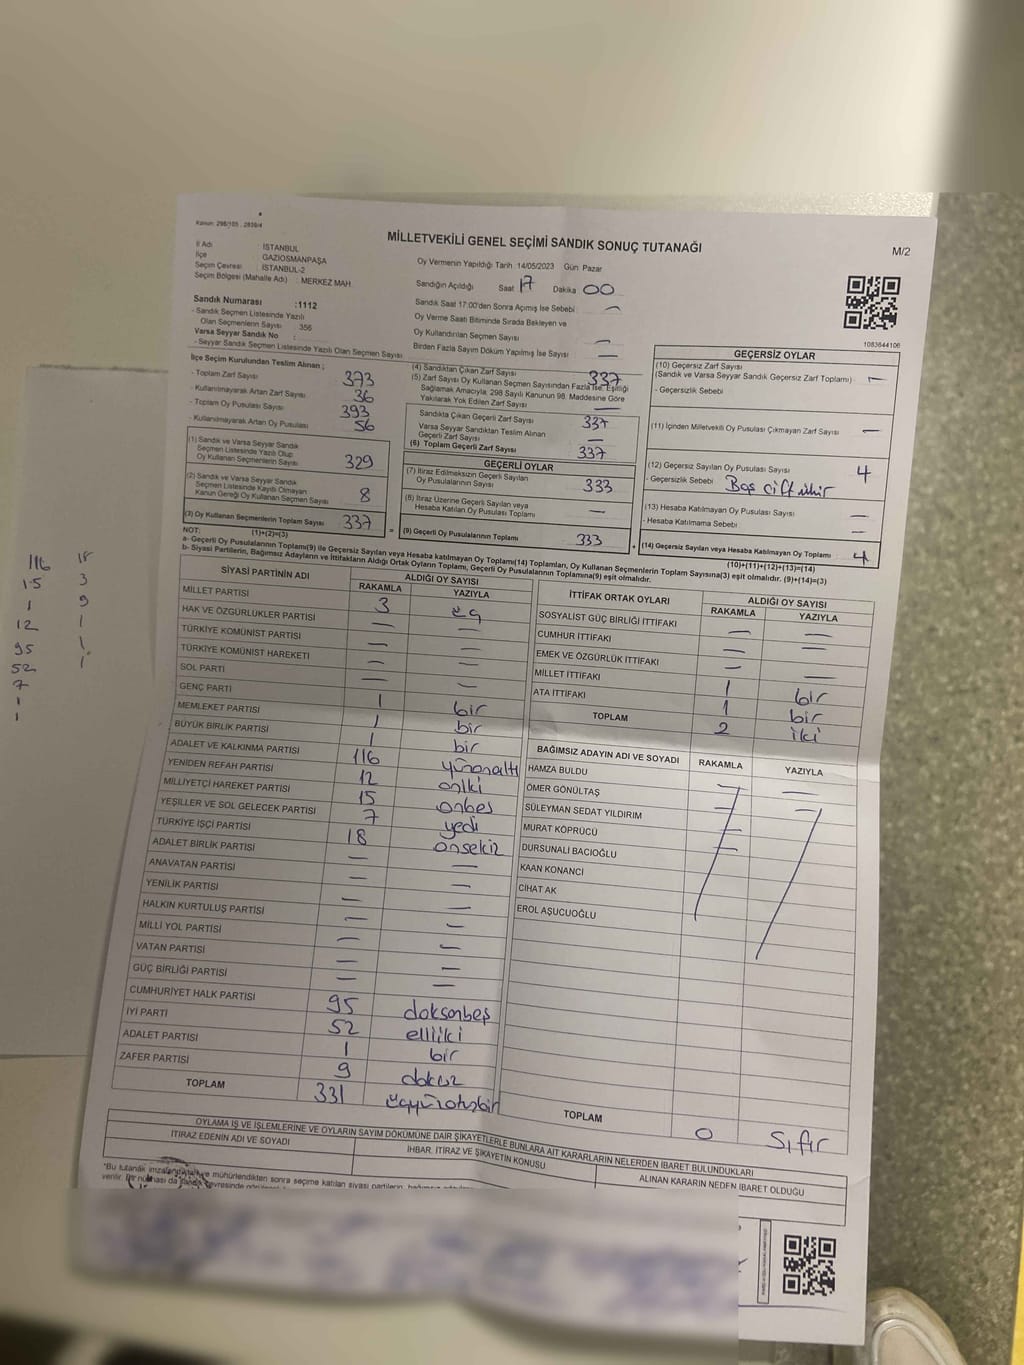 Kanun: 298/105 - 2839/4
MİLLETVEKİLİ GENEL SEÇİMİ SANDIK SONUÇ TUTANAĞI
M/2
İl Adı : İSTANBUL
İlçe : GAZİOSMANPAŞA
Seçim Çevresi : İSTANBUL-2
Seçim Bölgesi (Mahalle Adı) : MERKEZ MAH.
Oy Vermenin Yapıldığı Tarih 14/05/2023 Gün Pazar
Sandığın Açıldığı Saat 17 Dakika 00
Sandık Saat 17:00'den Sonra Açımış İse Sebebi —
Oy Verme Saati Bitiminde Sırada Bekleyen ve
Oy Kullandırılan Seçmen Sayısı —
Birden Fazla Sayım Döküm Yapılmış İse Sayısı —
Sandık Numarası :1112
- Sandık Seçmen Listesinde Yazılı
Olan Seçmenlerin Sayısı 356
Varsa Seyyar Sandık No :
- Seyyar Sandık Seçmen Listesinde Yazılı Olan Seçmen Sayısı
1083844106
İlçe Seçim Kurulundan Teslim Alınan ;
- Toplam Zarf Sayısı 373
- Kullanılmayarak Artan Zarf Sayısı 36
- Toplam Oy Pusulası Sayısı 393
- Kullanılmayarak Artan Oy Pusulası 56
(1) Sandık ve Varsa Seyyar Sandık
Seçmen Listesinde Yazılı Olup
Oy Kullanan Seçmenlerin Sayısı 329
(2) Sandık ve Varsa Seyyar Sandık
Seçmen Listelerinde Kayıtlı Olmayan
Kanun Gereği Oy Kullanan Seçmen Sayısı 8
(3) Oy Kullanan Seçmenlerin Toplam Sayısı 337
(1)+(2)=(3)
(4) Sandıktan Çıkan Zarf Sayısı 337
(5) Zarf Sayısı Oy Kullanan Seçmen Sayısından Fazla İse, Eşitliği
Sağlamak Amacıyla, 298 Sayılı Kanunun 98. Maddesine Göre
Yakılarak Yok Edilen Zarf Sayısı —
Sandıkta Çıkan Geçerli Zarf Sayısı 337
Varsa Seyyar Sandıktan Teslim Alınan
Geçerli Zarf Sayısı —
(6) Toplam Geçerli Zarf Sayısı 337
GEÇERLİ OYLAR
(7) İtiraz Edilmeksizin Geçerli Sayılan
Oy Pusulalarının Sayısı 333
(8) İtiraz Üzerine Geçerli Sayılan veya
Hesaba Katılan Oy Pusulası Toplamı —
= (9) Geçerli Oy Pusulalarının Toplamı 333
GEÇERSİZ OYLAR
(10) Geçersiz Zarf Sayısı
(Sandık ve Varsa Seyyar Sandık Geçersiz Zarf Toplamı) —
- Geçersizlik Sebebi
(11) İçinden Milletvekili Oy Pusulası Çıkmayan Zarf Sayısı —
(12) Geçersiz Sayılan Oy Pusulası Sayısı 4
- Geçersizlik Sebebi Boş çift mühür
(13) Hesaba Katılmayan Oy Pusulası Sayısı —
- Hesaba Katılmama Sebebi —
+ (14) Geçersiz Sayılan veya Hesaba Katılmayan Oy Toplamı 4
(10)+(11)+(12)+(13)=(14)
NOT:
a- Geçerli Oy Pusulalarının Toplamı(9) ile Geçersiz Sayılan veya Hesaba katılmayan Oy Toplamı(14) Toplamları, Oy Kullanan Seçmenlerin Toplam Sayısına(3) eşit olmalıdır. (9)+(14)=(3)
b- Siyasi Partilerin, Bağımsız Adayların ve İttifakların Aldığı Ortak Oyların Toplamı, Geçerli Oy Pusulalarının Toplamına(9) eşit olmalıdır.
SİYASİ PARTİNİN ADI ALDIĞI OY SAYISI
RAKAMLA YAZIYLA
MİLLET PARTİSİ 3 üç
HAK VE ÖZGÜRLÜKLER PARTİSİ — —
TÜRKİYE KOMÜNİST PARTİSİ — —
TÜRKİYE KOMÜNİST HAREKETİ — —
SOL PARTİ — —
GENÇ PARTİ 1 bir
MEMLEKET PARTİSİ 1 bir
BÜYÜK BİRLİK PARTİSİ 1 bir
ADALET VE KALKINMA PARTİSİ 116 yüzonaltı
YENİDEN REFAH PARTİSİ 12 oniki
MİLLİYETÇİ HAREKET PARTİSİ 15 onbeş
YEŞİLLER VE SOL GELECEK PARTİSİ 7 yedi
TÜRKİYE İŞÇİ PARTİSİ 18 onsekiz
ADALET BİRLİK PARTİSİ — —
ANAVATAN PARTİSİ — —
YENİLİK PARTİSİ — —
HALKIN KURTULUŞ PARTİSİ — —
MİLLİ YOL PARTİSİ — —
VATAN PARTİSİ — —
GÜÇ BİRLİĞİ PARTİSİ — —
CUMHURİYET HALK PARTİSİ 95 doksanbeş
İYİ PARTİ 52 elliiki
ADALET PARTİSİ 1 bir
ZAFER PARTİSİ 9 dokuz
TOPLAM 331 üçyüzotuzbir
İTTİFAK ORTAK OYLARI ALDIĞI OY SAYISI
RAKAMLA YAZIYLA
SOSYALİST GÜÇ BİRLİĞİ İTTİFAKI — —
CUMHUR İTTİFAKI — —
EMEK VE ÖZGÜRLÜK İTTİFAKI — —
MİLLET İTTİFAKI 1 bir
ATA İTTİFAKI 1 bir
TOPLAM 2 iki
BAĞIMSIZ ADAYIN ADI VE SOYADI RAKAMLA YAZIYLA
HAMZA BULDU
ÖMER GÖNÜLTAŞ
SÜLEYMAN SEDAT YILDIRIM
MURAT KÖPRÜCÜ
DURSUNALİ BACIOĞLU
KAAN KONANCİ
CİHAT AK
EROL AŞUCUOĞLU
TOPLAM 0 Sıfır
OYLAMA İŞ VE İŞLEMLERİNE VE OYLARIN SAYIM DÖKÜMÜNE DAİR ŞİKAYETLERLE BUNLARA AİT KARARLARIN NELERDEN İBARET BULUNDUKLARI
İTİRAZ EDENİN ADI VE SOYADI
İHBAR, İTİRAZ VE ŞİKAYETİN KONUSU
ALINAN KARARIN NEDEN İBARET OLDUĞU
116 18
15 3
1 9
12 1
95 1
52 1
7
1
1